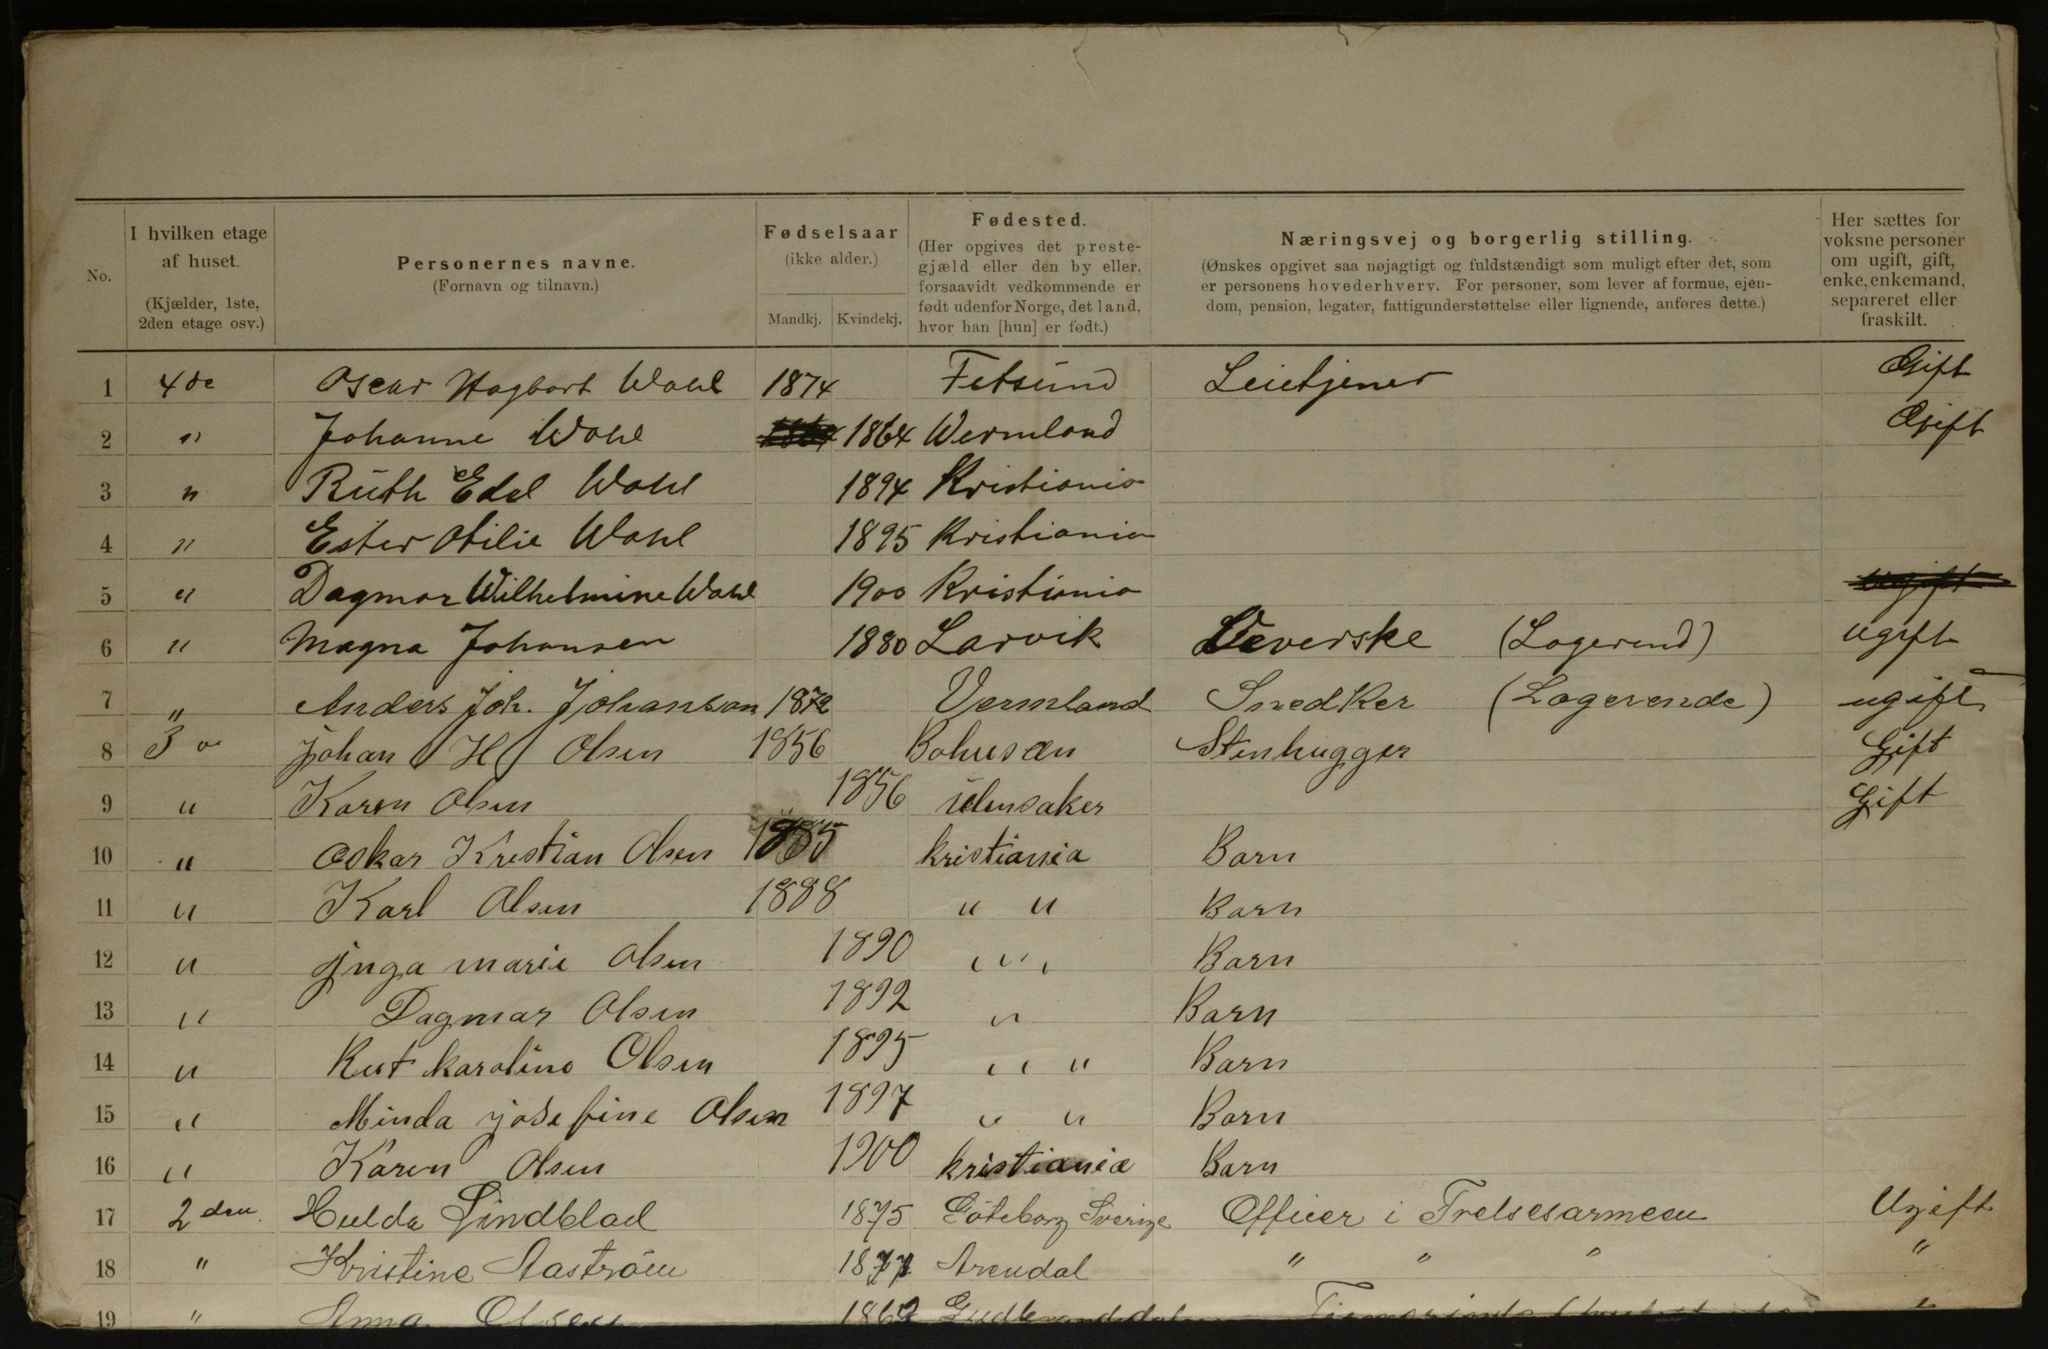 No.
I hvilken etage af huset.
(Kjælder, 1ste, 2den etage osv.)
Personernes navne.
(Fornavn og tilnavn.)
Fødselsaar
(ikke alder.)
Mandkj. Kvindekj.
Fødested.
(Her opgives det prestegjæld eller den by eller, forsaavidt vedkommende er født udenfor Norge, det land, hvor han [hun] er født.)
Næringsvej og borgerlig stilling.
(Ønskes opgivet saa nøjagtigt og fuldstændigt som muligt efter det, som er personens hovederhverv. For personer, som lever af formue, ejendom, pension, legater, fattigunderstøttelse eller lignende, anføres dette.)
Her sættes for voksne personer om ugift, gift, enke, enkemand, separeret eller fraskilt.
1 4de Oscar Hagbart Wahl 1874 Fetsund Leietjener Gift
2 " Johanne Wahl 1864 Wermland Gift
3 " Ruth Edel Wahl 1894 Kristiania
4 " Ester Otilie Wahl 1895 Kristiania
5 " Dagmar Wilhelmine Wahl 1900 Kristiania
6 " Magna Johansen 1880 Larvik Væverske (Logerend) ugift
7 " Anders Joh. Johanson 1872 Vermland Snedker (Logerende) ugift
8 3de Johan H Olsen 1856 Bohuslæn Stenhugger Gift
9 " Karen Olsen 1856 Ulensaker Gift
10 " Oskar Kristian Olsen 1885 kristiania Barn
11 " Karl Olsen 1888 " " Barn
12 " Inga marie Olsen 1890 " " Barn
13 " Dagmar Olsen 1892 " Barn
14 " Rut karoline Olsen 1895 " " Barn
15 " Minda josefine Olsen 1897 " " Barn
16 " Karen Olsen 1900 kristiania Barn
17 2den Hulda Lindblad 1875 Göteborg Sverige Officer i Frelsesarmeen Ugift
18 " Kristine Aaström 1877 Arendal " " " "
19 " Anna Olsen 186 Gudbrandsdalen